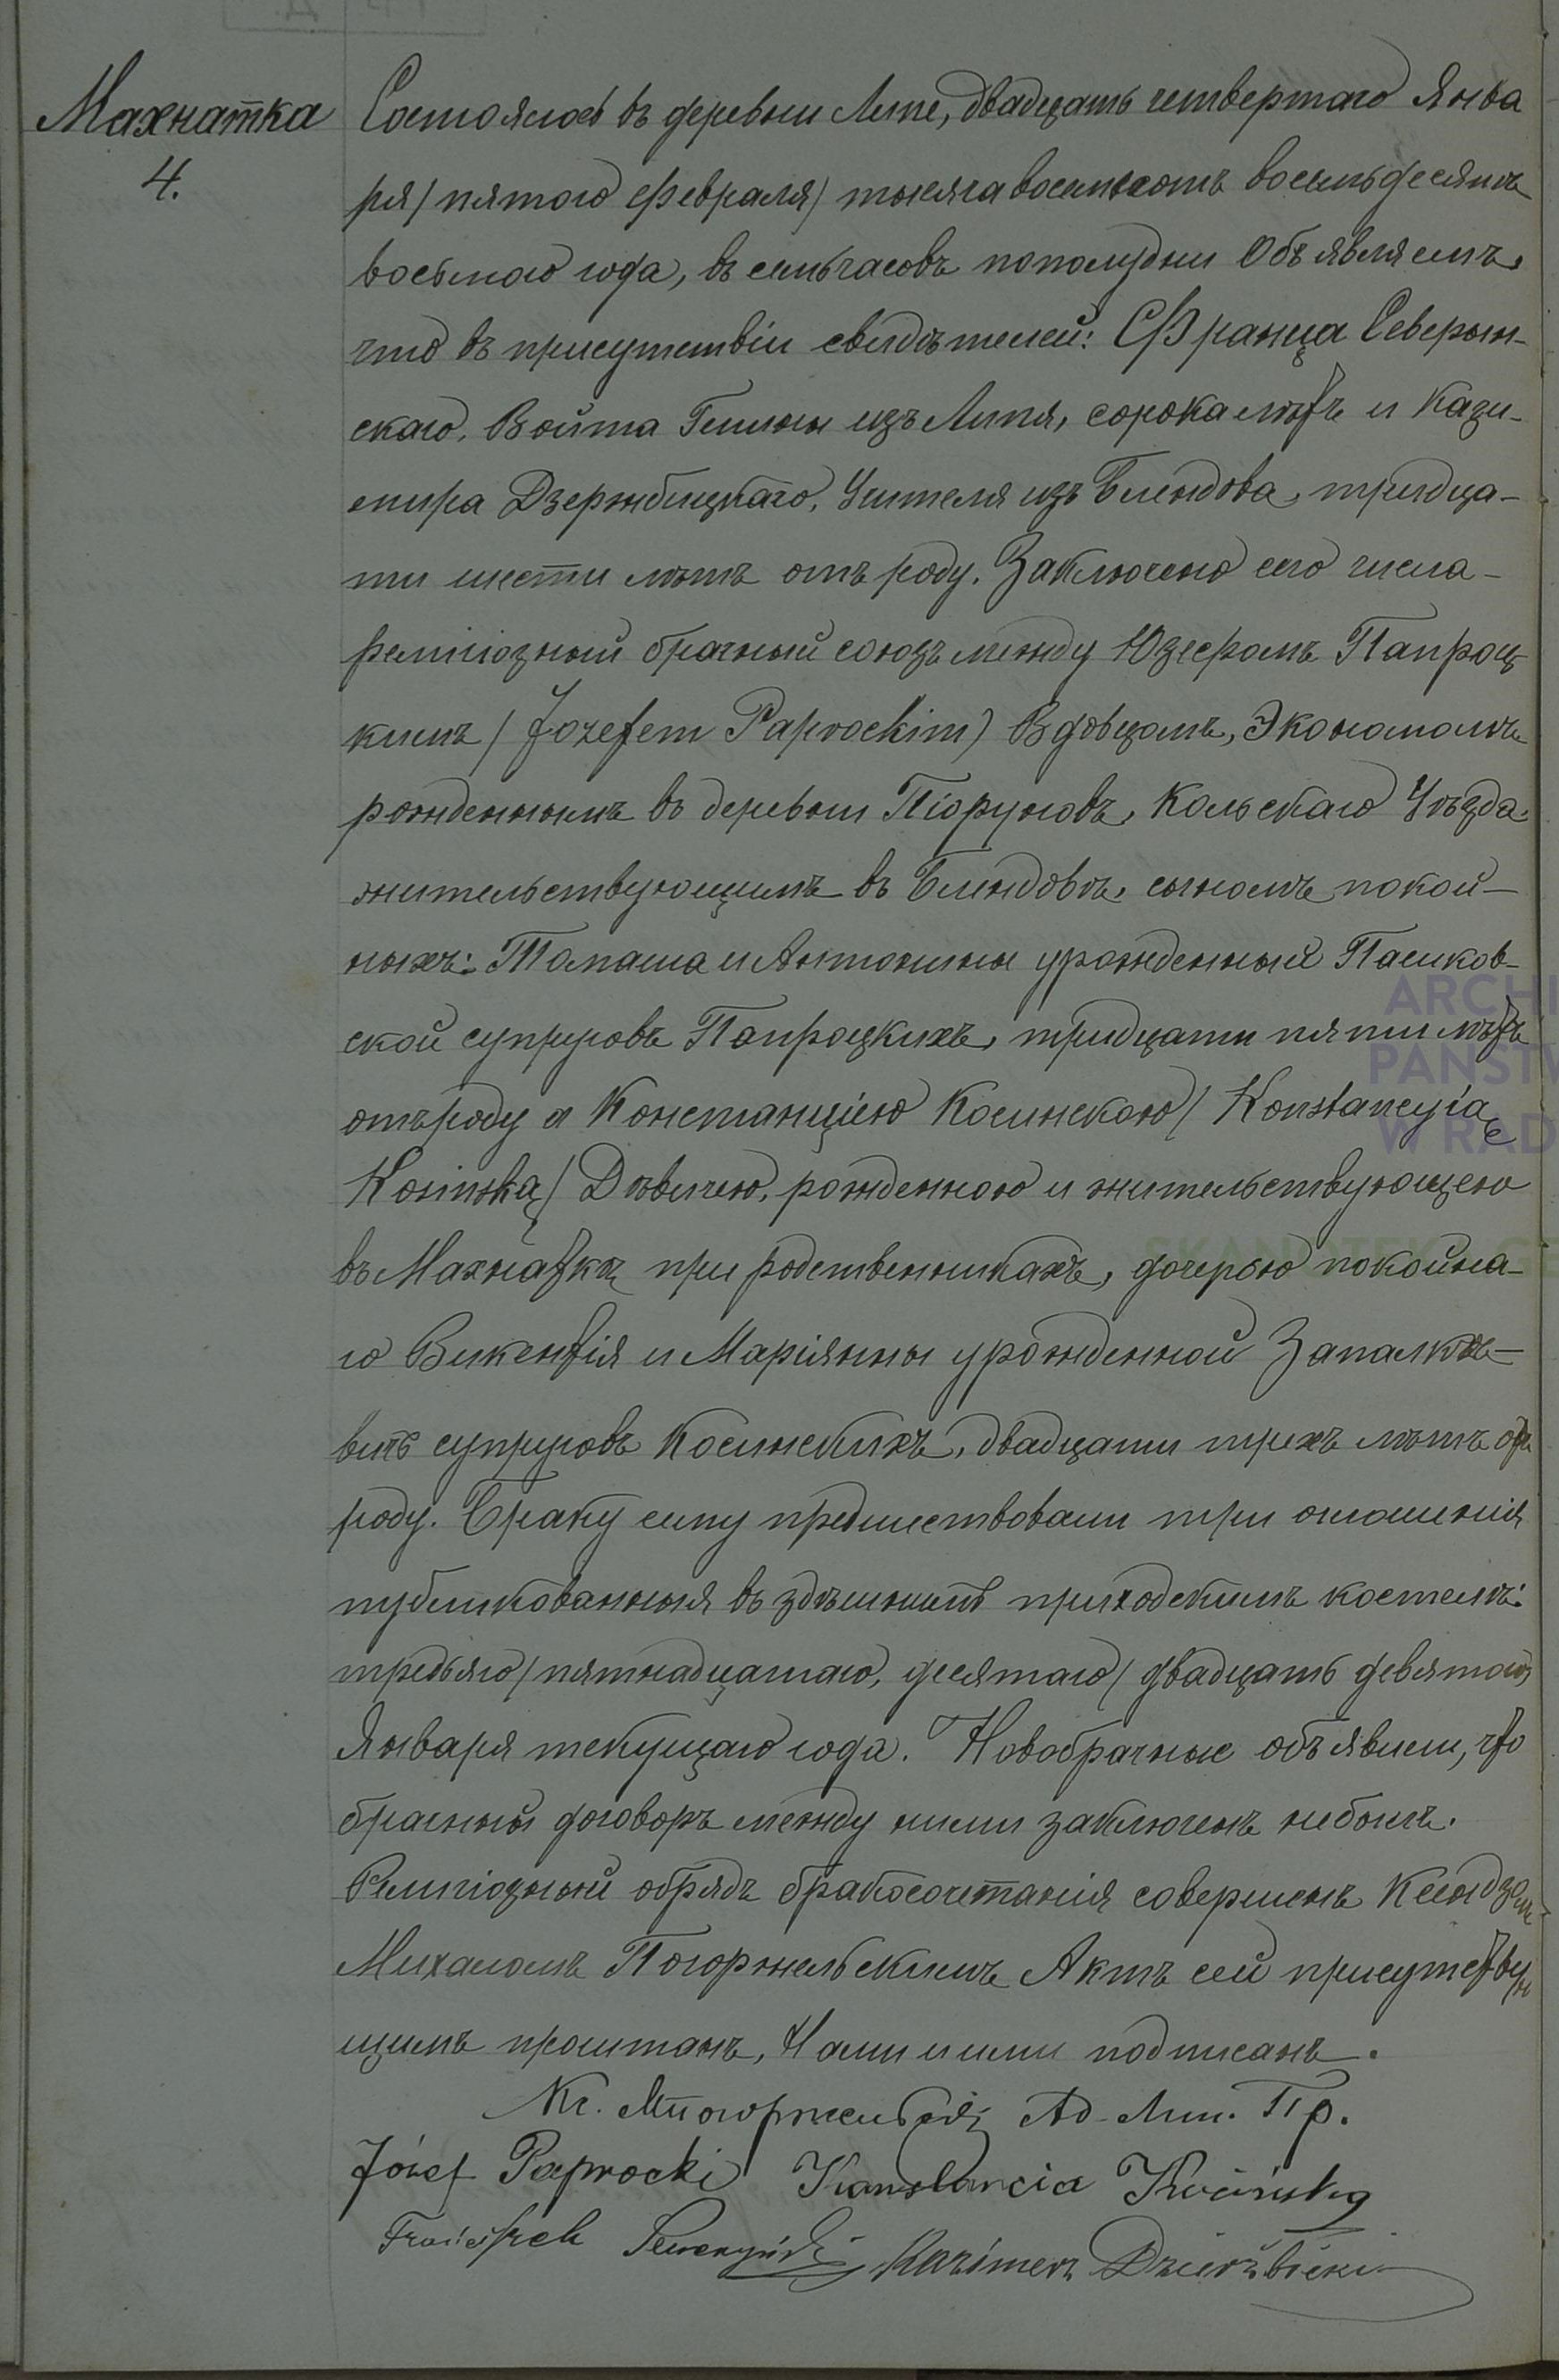 Махнатка
4.
Состоялось въ деревни Липе, двадцать четвертаго Янва
ря (пятого Февраля) тысяча восемьсотъ восемьдесятъ
восьмаго года, въ семь часовъ пополудни Объявляемъ,
что въ присутствіи свидѣтелей: Франца Северын-
скаго, Войта Гмины изъ Липя, сорока лѣтъ и Кази-
мира Дзержбицкаго, Учителя изъ Блендова, тридца-
ти шести лѣтъ отъ роду. Заключено сего числа
религіозный брачный союзъ между Юзефомъ Папроц
кимъ (Józefem Paprockim) Вдовцомъ, Экономомъ
рожденнымъ въ деревни Піоруновъ, Кольскаго Уѣзда,
жительствующимъ въ Блендовѣ, сыномъ покой-
ныхъ: Томаша и Антонины урожденныя Пашков-
ской супруговъ Папроцкихъ, тридцати пяти лѣтъ
отъ роду а Констанціею Косинскою (Konstancyią
Kosinską) Дѣвицею, рожденною и жительствующею
въ Махнаткѣ при родственникахъ, дочерью покойна-
го Викентія и Маріянны урожденной
супруговъ Косинскихъ, двадцати трехъ лѣтъ отъ
роду. Браку сему предшествовали три оглашенія
публикованныя въ здѣшнимъ приходскимъ костелѣ:
третьяго (пятнадцатаго, десятаго (двадцать девятого)
Января текущаго года. Новобрачные объявили, что
брачный договоръ между ними заключенъ небылъ.
Религіозный обрядъ бракосочетанія совершенъ Ксендзомъ
Михаломъ Погоржельскимъ Актъ сей присутству
щимъ прочитанъ, Нами и ими подписанъ.
Кс. МПогоржельскій Ад. Лип. Пр.
Józef Paprocki Konstancia Kosińska
Franciszek Seweryński Kazimierz Dzierżbicki
ARCHI
PAŃSTW
W RAD
SKANOTEKA GE